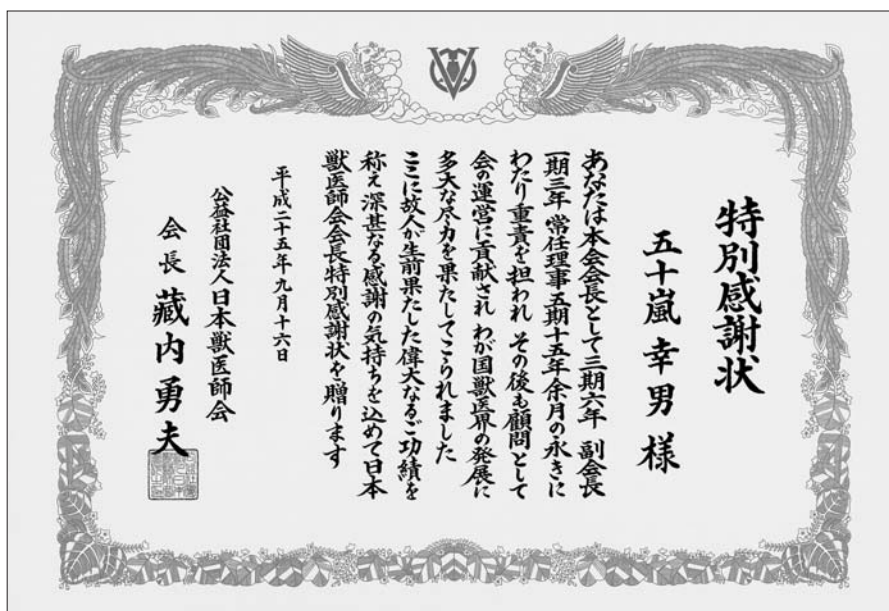 特別感謝状
五十嵐 幸男 様
あなたは本会会長として三期六年 副会長
一期三年 常任理事五期十五年余月の永きに
わたり重責を担われ その後も顧問として
会の運営に貢献され わが国獣医界の発展に
多大な尽力を果たしてこられました
ここに故人が生前果たした偉大なるご功績を
称え 深甚なる感謝の気持ちを込めて日本
獣医師会会長特別感謝状を贈ります
平成二十五年九月十六日
公益社団法人日本獣医師会
会長 藏内勇夫